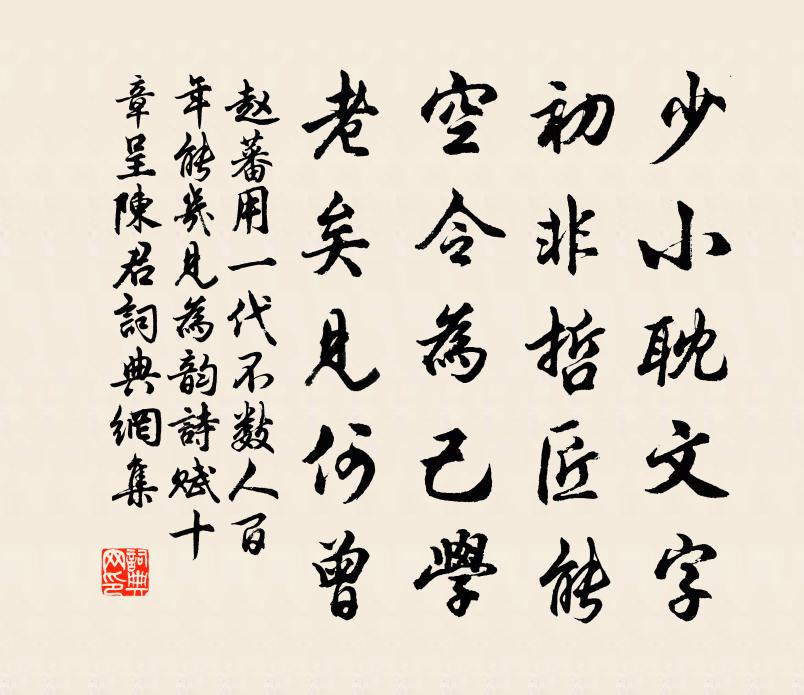 少小耽文字
初非哲匠能
空令為己學
老矣見何曾
赵蕃用一代不数人百
年能幾見為韵詩赋十
章呈陳君詞典網集
詞典網印